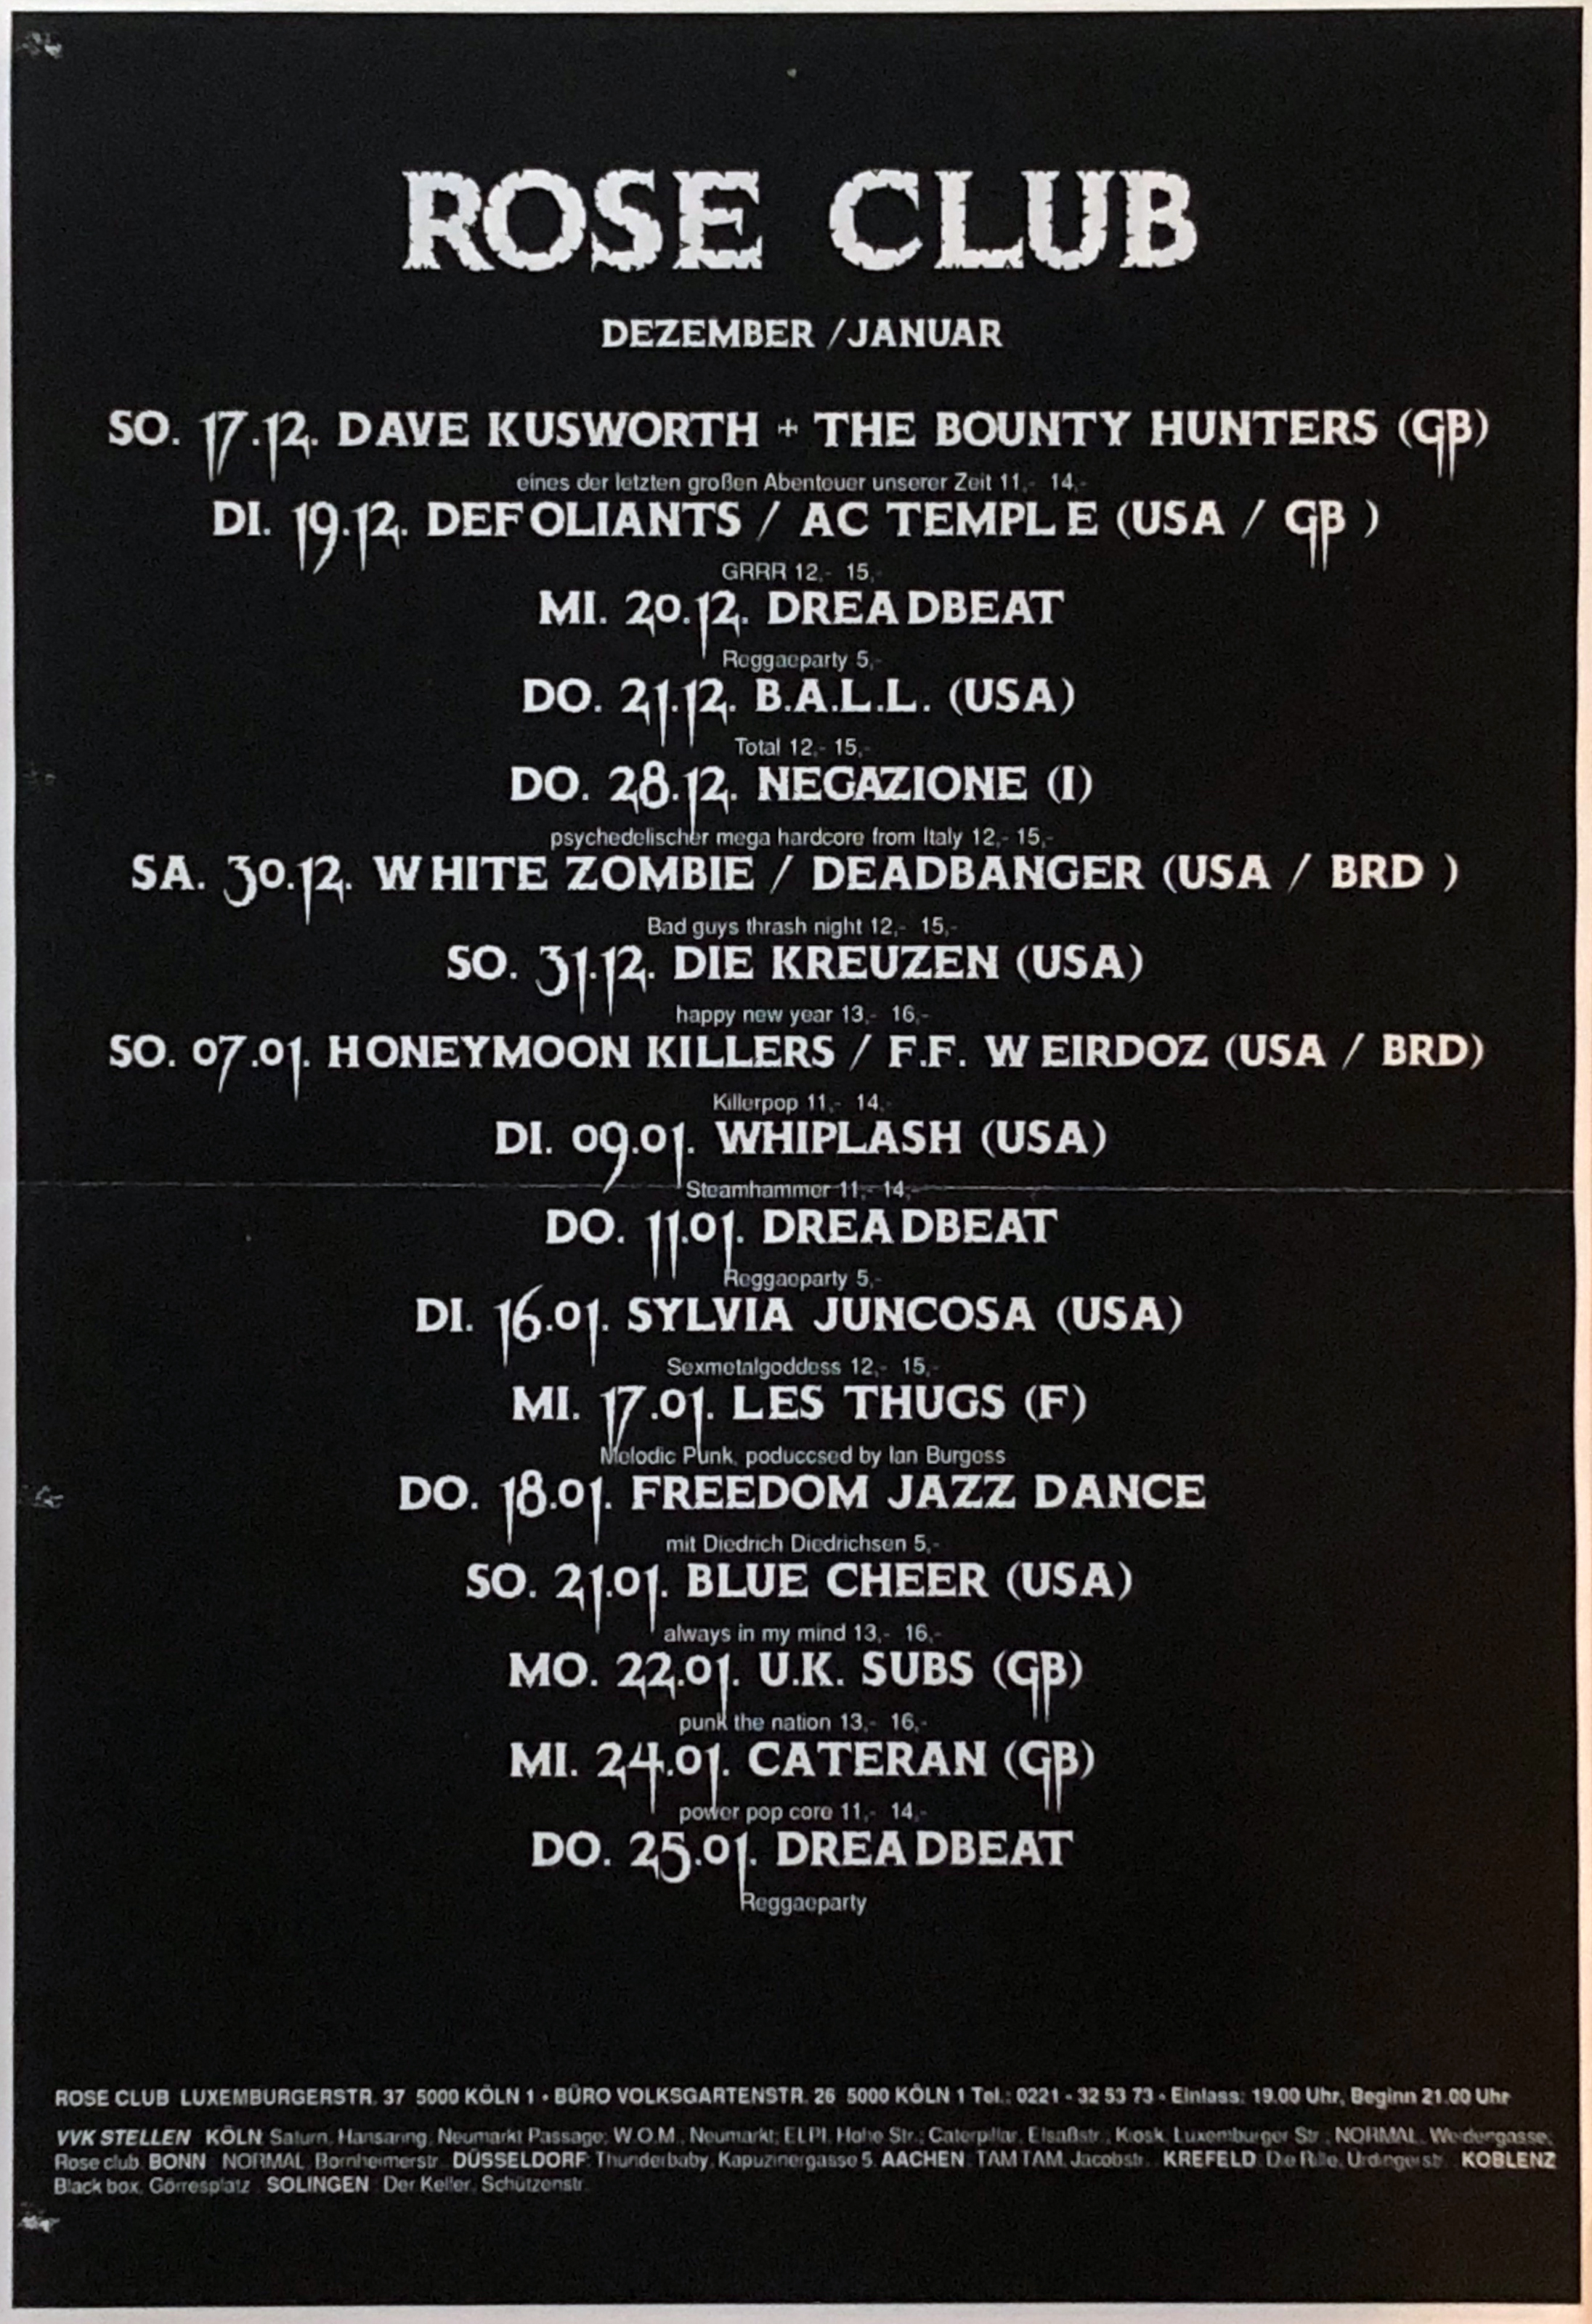 ROSE CLUB
DEZEMBER /JANUAR
SO. 17.12. DAVE KUSWORTH + THE BOUNTY HUNTERS (GB)
eines der letzten großen Abenteuer unserer Zeit 11,- 14,-
DI. 19.12. DEFOLIANTS / AC TEMPLE (USA / GB )
GRRR 12,- 15,-
MI. 20.12. DREADBEAT
Reggaeparty 5,-
DO. 21.12. B.A.L.L. (USA)
Total 12,- 15,-
DO. 28.12. NEGAZIONE (I)
psychedelischer mega hardcore from Italy 12,- 15,-
SA. 30.12. WHITE ZOMBIE / DEADBANGER (USA / BRD )
Bad guys thrash night 12,- 15,-
SO. 31.12. DIE KREUZEN (USA)
happy new year 13,- 16,-
SO. 07.01. HONEYMOON KILLERS / F.F. WEIRDOZ (USA / BRD)
Killerpop 11,- 14,-
DI. 09.01. WHIPLASH (USA)
Steamhammer 11,- 14,-
DO. 11.01. DREADBEAT
Reggaeparty 5,-
DI. 16.01. SYLVIA JUNCOSA (USA)
Sexmetalgoddess 12,- 15,-
MI. 17.01. LES THUGS (F)
Melodic Punk, poduccsed by Ian Burgess
DO. 18.01. FREEDOM JAZZ DANCE
mit Diedrich Diedrichsen 5,-
SO. 21.01. BLUE CHEER (USA)
always in my mind 13,- 16,-
MO. 22.01. U.K. SUBS (GB)
punk the nation 13,- 16,-
MI. 24.01. CATERAN (GB)
power pop core 11,- 14,-
DO. 25.01. DREADBEAT
Reggaeparty
ROSE CLUB LUXEMBURGERSTR. 37 5000 KÖLN 1 • BÜRO VOLKSGARTENSTR. 26 5000 KÖLN 1 Tel.: 0221 - 32 53 73 • Einlass: 19.00 Uhr, Beginn 21.00 Uhr
VVK STELLEN KÖLN Saturn, Hansaring, Neumarkt Passage; W.O.M., Neumarkt; ELPI, Hohe Str.; Caterpillar, Elsaßstr., Kiosk, Luxemburger Str.; NORMAL, Weidengasse;
Rose club. BONN NORMAL Bornheimerstr. DÜSSELDORF: Thunderbaby, Kapuzinergasse 5. AACHEN TAM TAM, Jacobstr. KREFELD Die Rille, Urdingerstr. KOBLENZ
Black box, Görresplatz SOLINGEN Der Keller, Schützenstr.